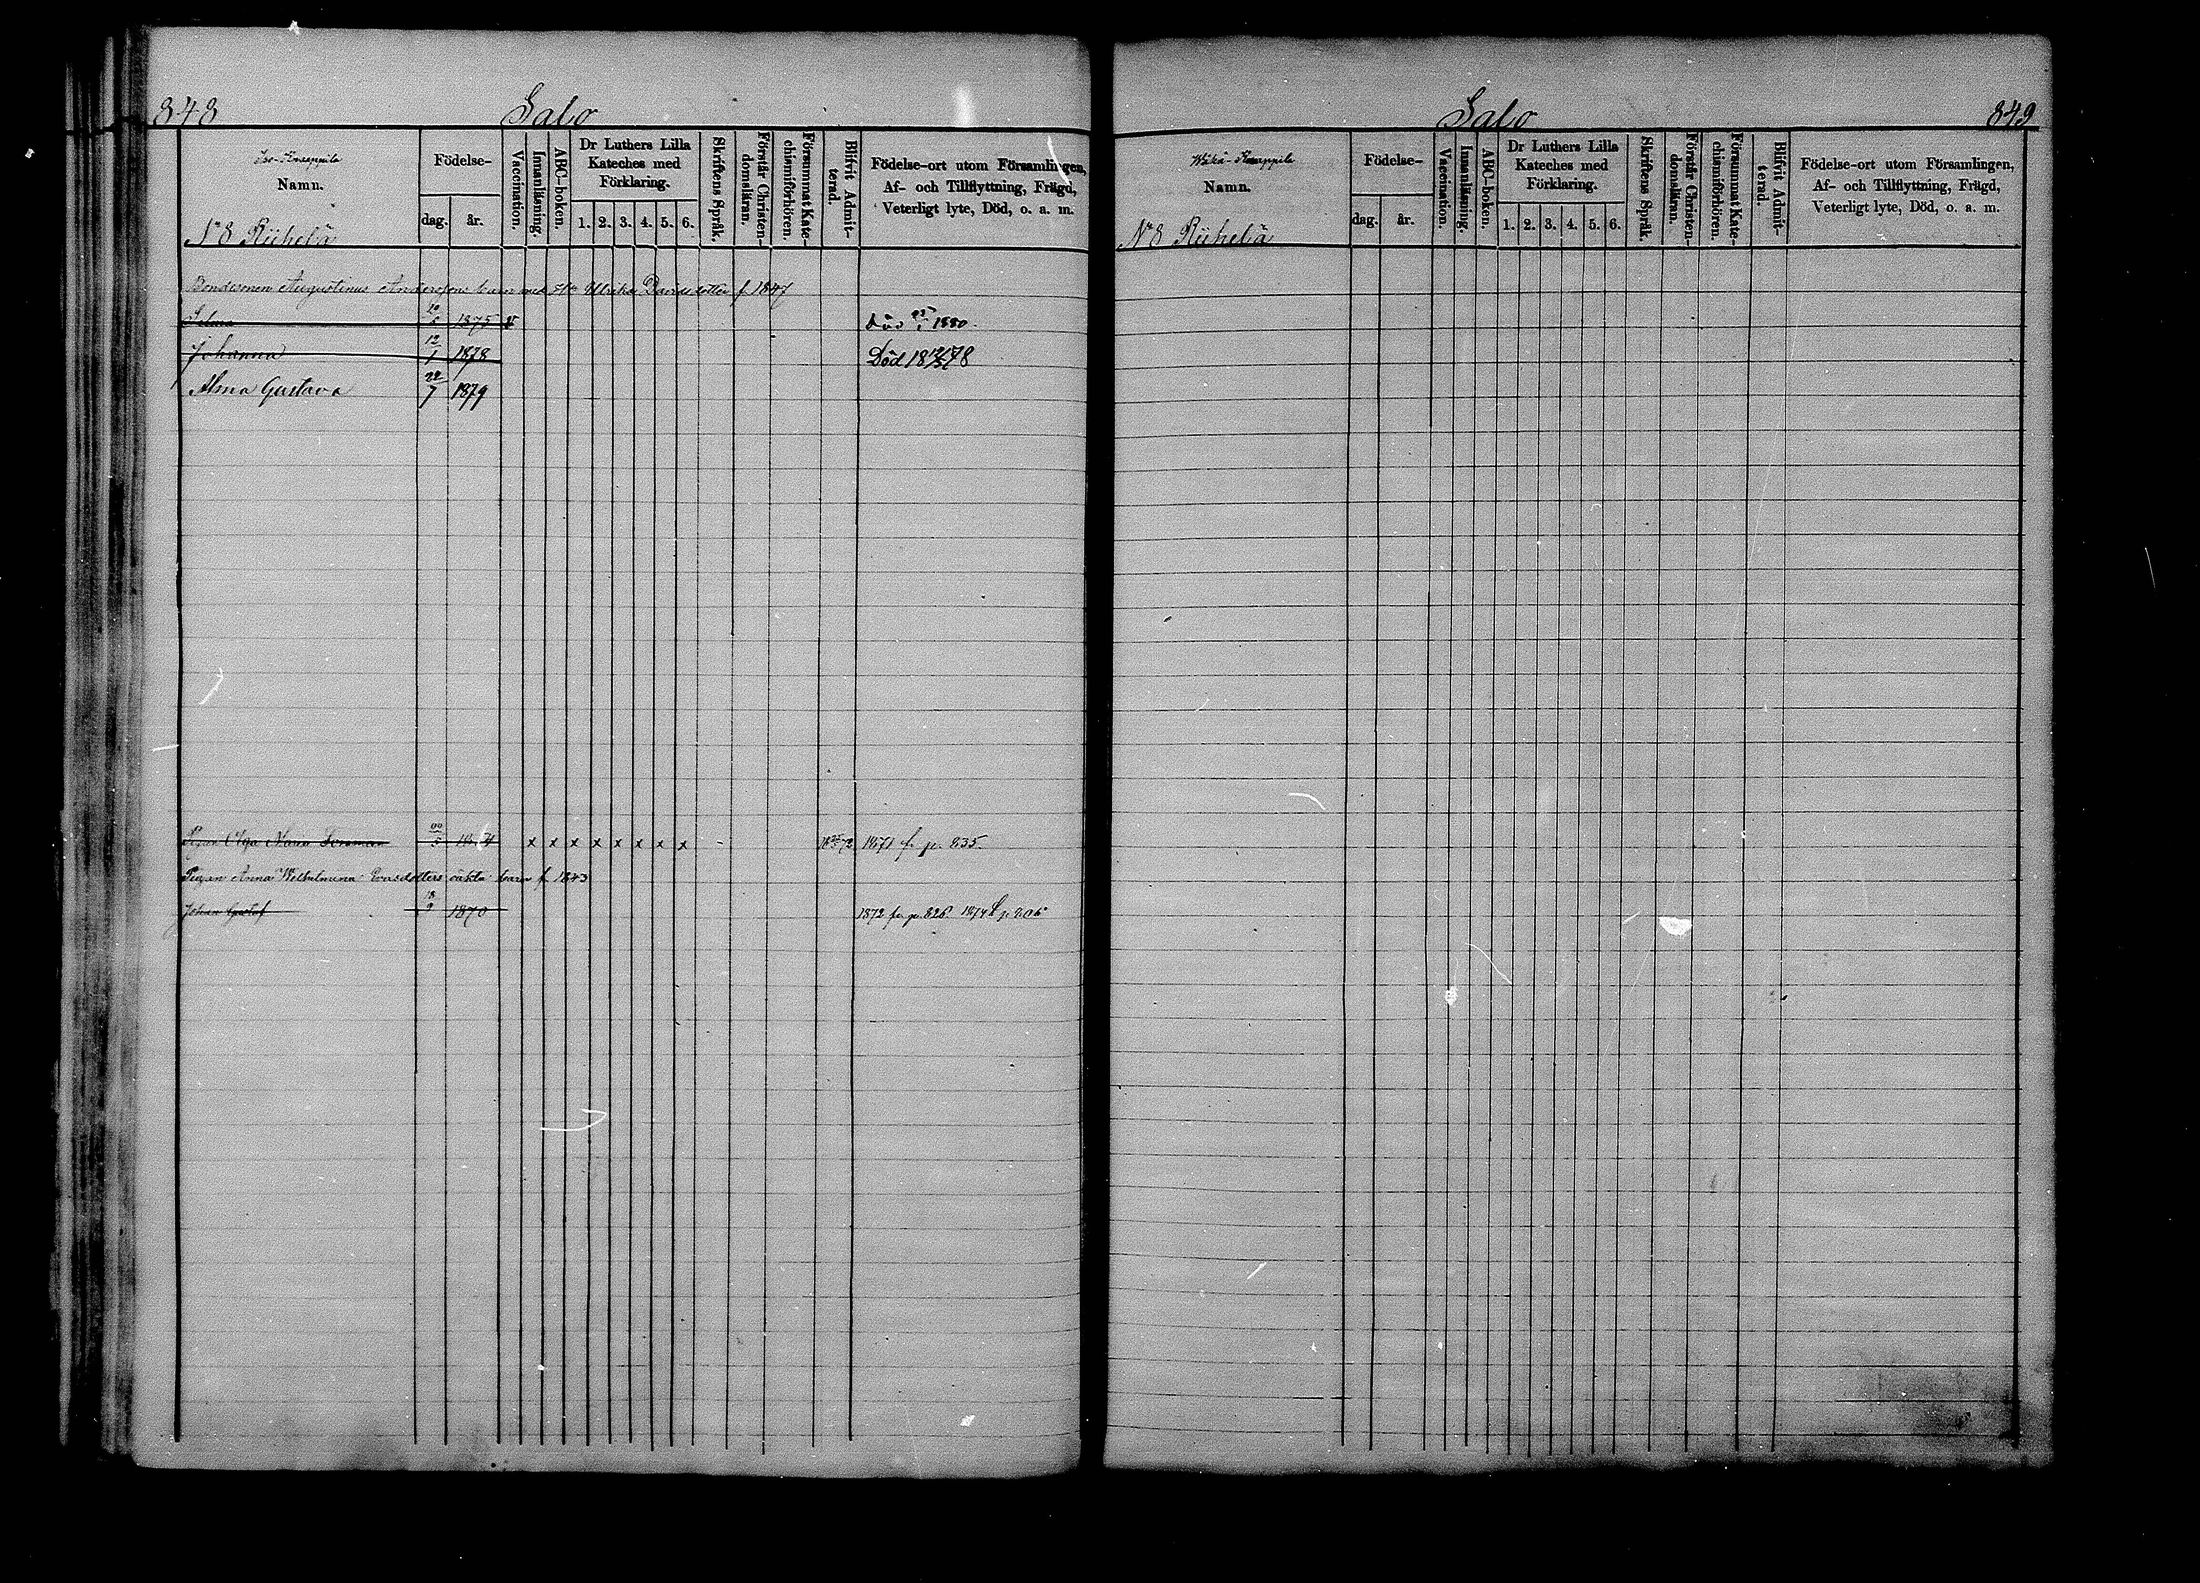 848 Salo
Iso-Knaappila
Namn.
Födelse-
dag. år.
Vaccination.
Innanläsning.
ABC-boken.
Dr Luthers Lilla
Kateches med
Förklaring.
1. 2. 3. 4. 5. 6.
Skriftens Språk.
Förstår Christen-
domsläran.
Försummat Kate-
chismiförhören.
Blifvit Admit-
terad.
Födelse-ort utom Församlingen,
Af- och Tillflyttning, Frägd,
Veterligt lyte, Död, o. a. m.
No 8 Riihelä
Bondesonen Augustinus Anderssons barn med Ulrika Davidsdotter f 1847
Selma 1875 v Död 1880.
Johanna 12/1 1878 Död 1878
Alma Gustava 22/7 1879
Pigan Olga Maria x x x x x x x x 72 1871 fr p. 835.
Pigan Anna Wilhelmina Ersdotters oäkta barn f. 1843
Johan Gustaf 18/9 1870 1872 fr. p. 826 1874 t p. 206
Salo 849
Wähä-Knaappila
Namn.
Födelse-
dag. år.
Vaccination.
Innanläsning.
ABC-boken.
Dr Luthers Lilla
Kateches med
Förklaring.
1. 2. 3. 4. 5. 6.
Skriftens Språk.
Förstår Christen-
domsläran.
Försummat Kate-
chismiförhören.
Blifvit Admit-
terad.
Födelse-ort utom Församlingen,
Af- och Tillflyttning, Frägd,
Veterligt lyte, Död, o. a. m.
No 8 Riihelä